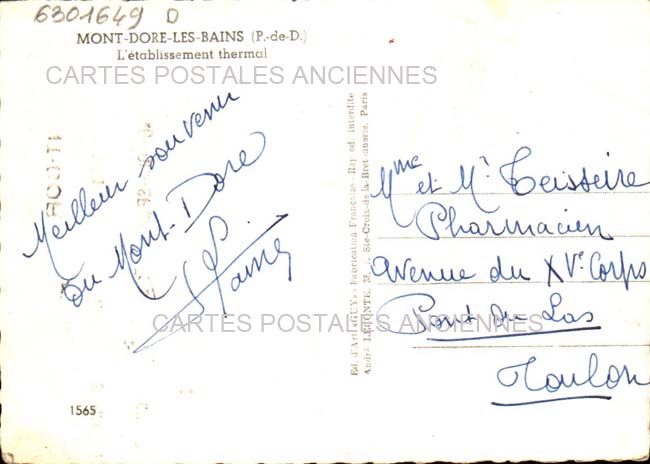 6301649 D
MONT-DORE-LES-BAINS (P.-de-D.)
L'établissement thermal
CARTES POSTALES ANCIENNES
Meilleur souvenir
du Mont-Dore
Mme et Mr Teisseire
Pharmacien
Avenue du XVe Corps
Pont du Las
Toulon
CARTES POSTALES ANCIENNES
Ed. d'Art "GUY" - Fabrication Française - Reprod. interdite
André LECONTE, 38, r. Ste-Croix-de-la-Bretonnerie, Paris
1565